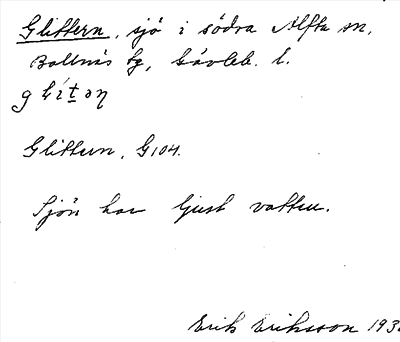 Glittern, sjö i södra Alfta sn,
Bollnäs tg, Gävleb. l.
Glittern, G104.
Sjön har ljust vatten.
Erik Eriksson 193